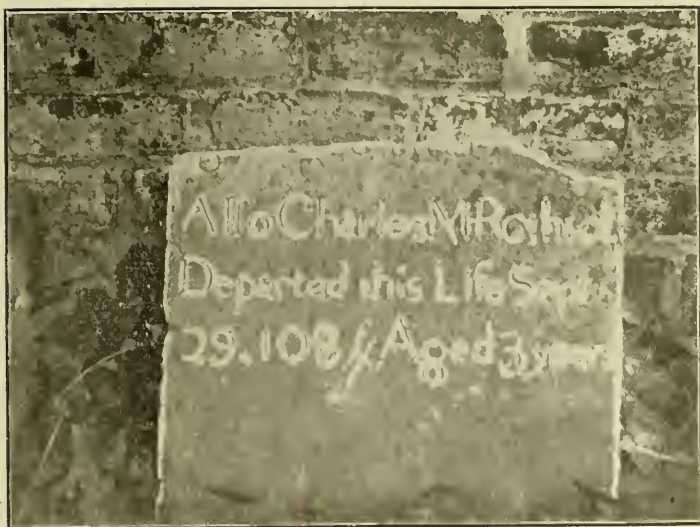 Allo Charles M Rothrall
Departed this Life Sept
29. 108 & Aged 3 years